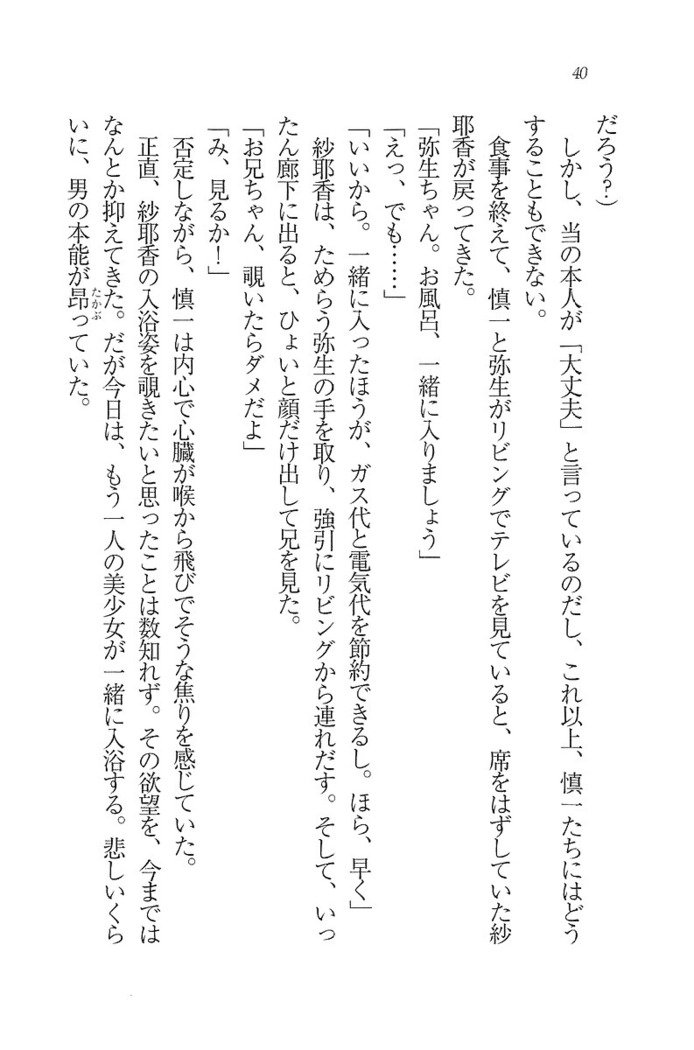 40
だろう？）
　しかし、当の本人が「大丈夫」と言っているのだし、これ以上、慎一たちにはどう
することもできない。
　食事を終えて、慎一と弥生がリビングでテレビを見ていると、席をはずしていた紗
耶香が戻ってきた。
「弥生ちゃん。お風呂、一緒に入りましょう」
「えっ、でも……」
「いいから。一緒に入ったほうが、ガス代と電気代を節約できるし。ほら、早く」
　紗耶香は、ためらう弥生の手を取り、強引にリビングから連れだす。そして、いっ
たん廊下に出ると、ひょいと顔だけ出して兄を見た。
「お兄ちゃん、覗いたらダメだよ」
「み、見るか！」
　否定しながら、慎一は内心で心臓が喉から飛びでそうな焦りを感じていた。
　正直、紗耶香の入浴姿を覗きたいと思ったことは数知れず。その欲望を、今までは
なんとか抑えてきた。だが今日は、もう一人の美少女が一緒に入浴する。悲しいくら
いに、男の本能が昂っていた。
たかぶ